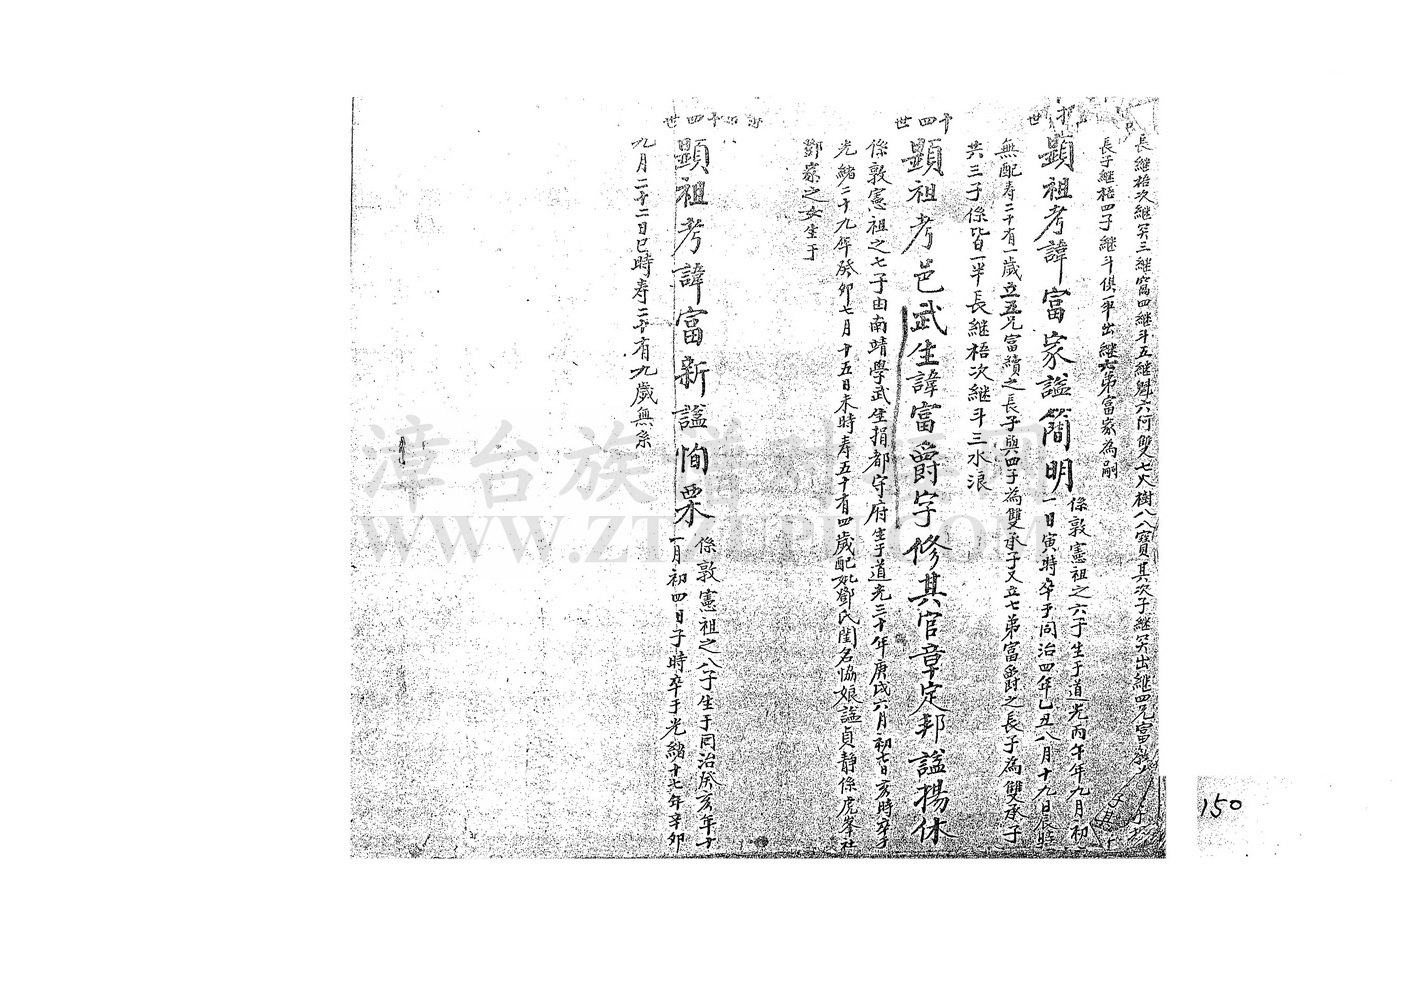 長継梧次継笑三継富四継斗五継魁六阿雙七火樹八八寳其次子継笑出継四兄富
長子継梧四子継斗俱一半出継六弟富家為嗣
十世
顯祖考諱富家諡簡明
係敦憲祖之六子生于道光丙午年九月初
一日寅時卒于同治四年乙丑八月十九日辰時
無配寿二十有一歲立五兄富績之長子與四子為雙承子又立七弟富爵之長子為雙承子
共三子係皆一半長継梧次継斗三水浪
十四世
顯祖考邑武生諱富爵字修其官章定邦諡揚休
係敦憲祖之七子由南靖學武生捐都守府生于道光三十年庚戌六月初七日亥時卒于
光緒二十九年癸卯七月十五日未時寿五十有四歲配妣鄧氏閨名恊娘諡貞靜係虎峯社
鄧寮之女生于
十四世
顯祖考諱富新諡恂栗
係敦憲祖之八子生于同治癸亥年十
一月初四日子時卒于光緒十七年辛卯
九月二十二日巳時寿二十有九歲無系
漳台族谱对接网
WWW.ZTZUPU.COM
150